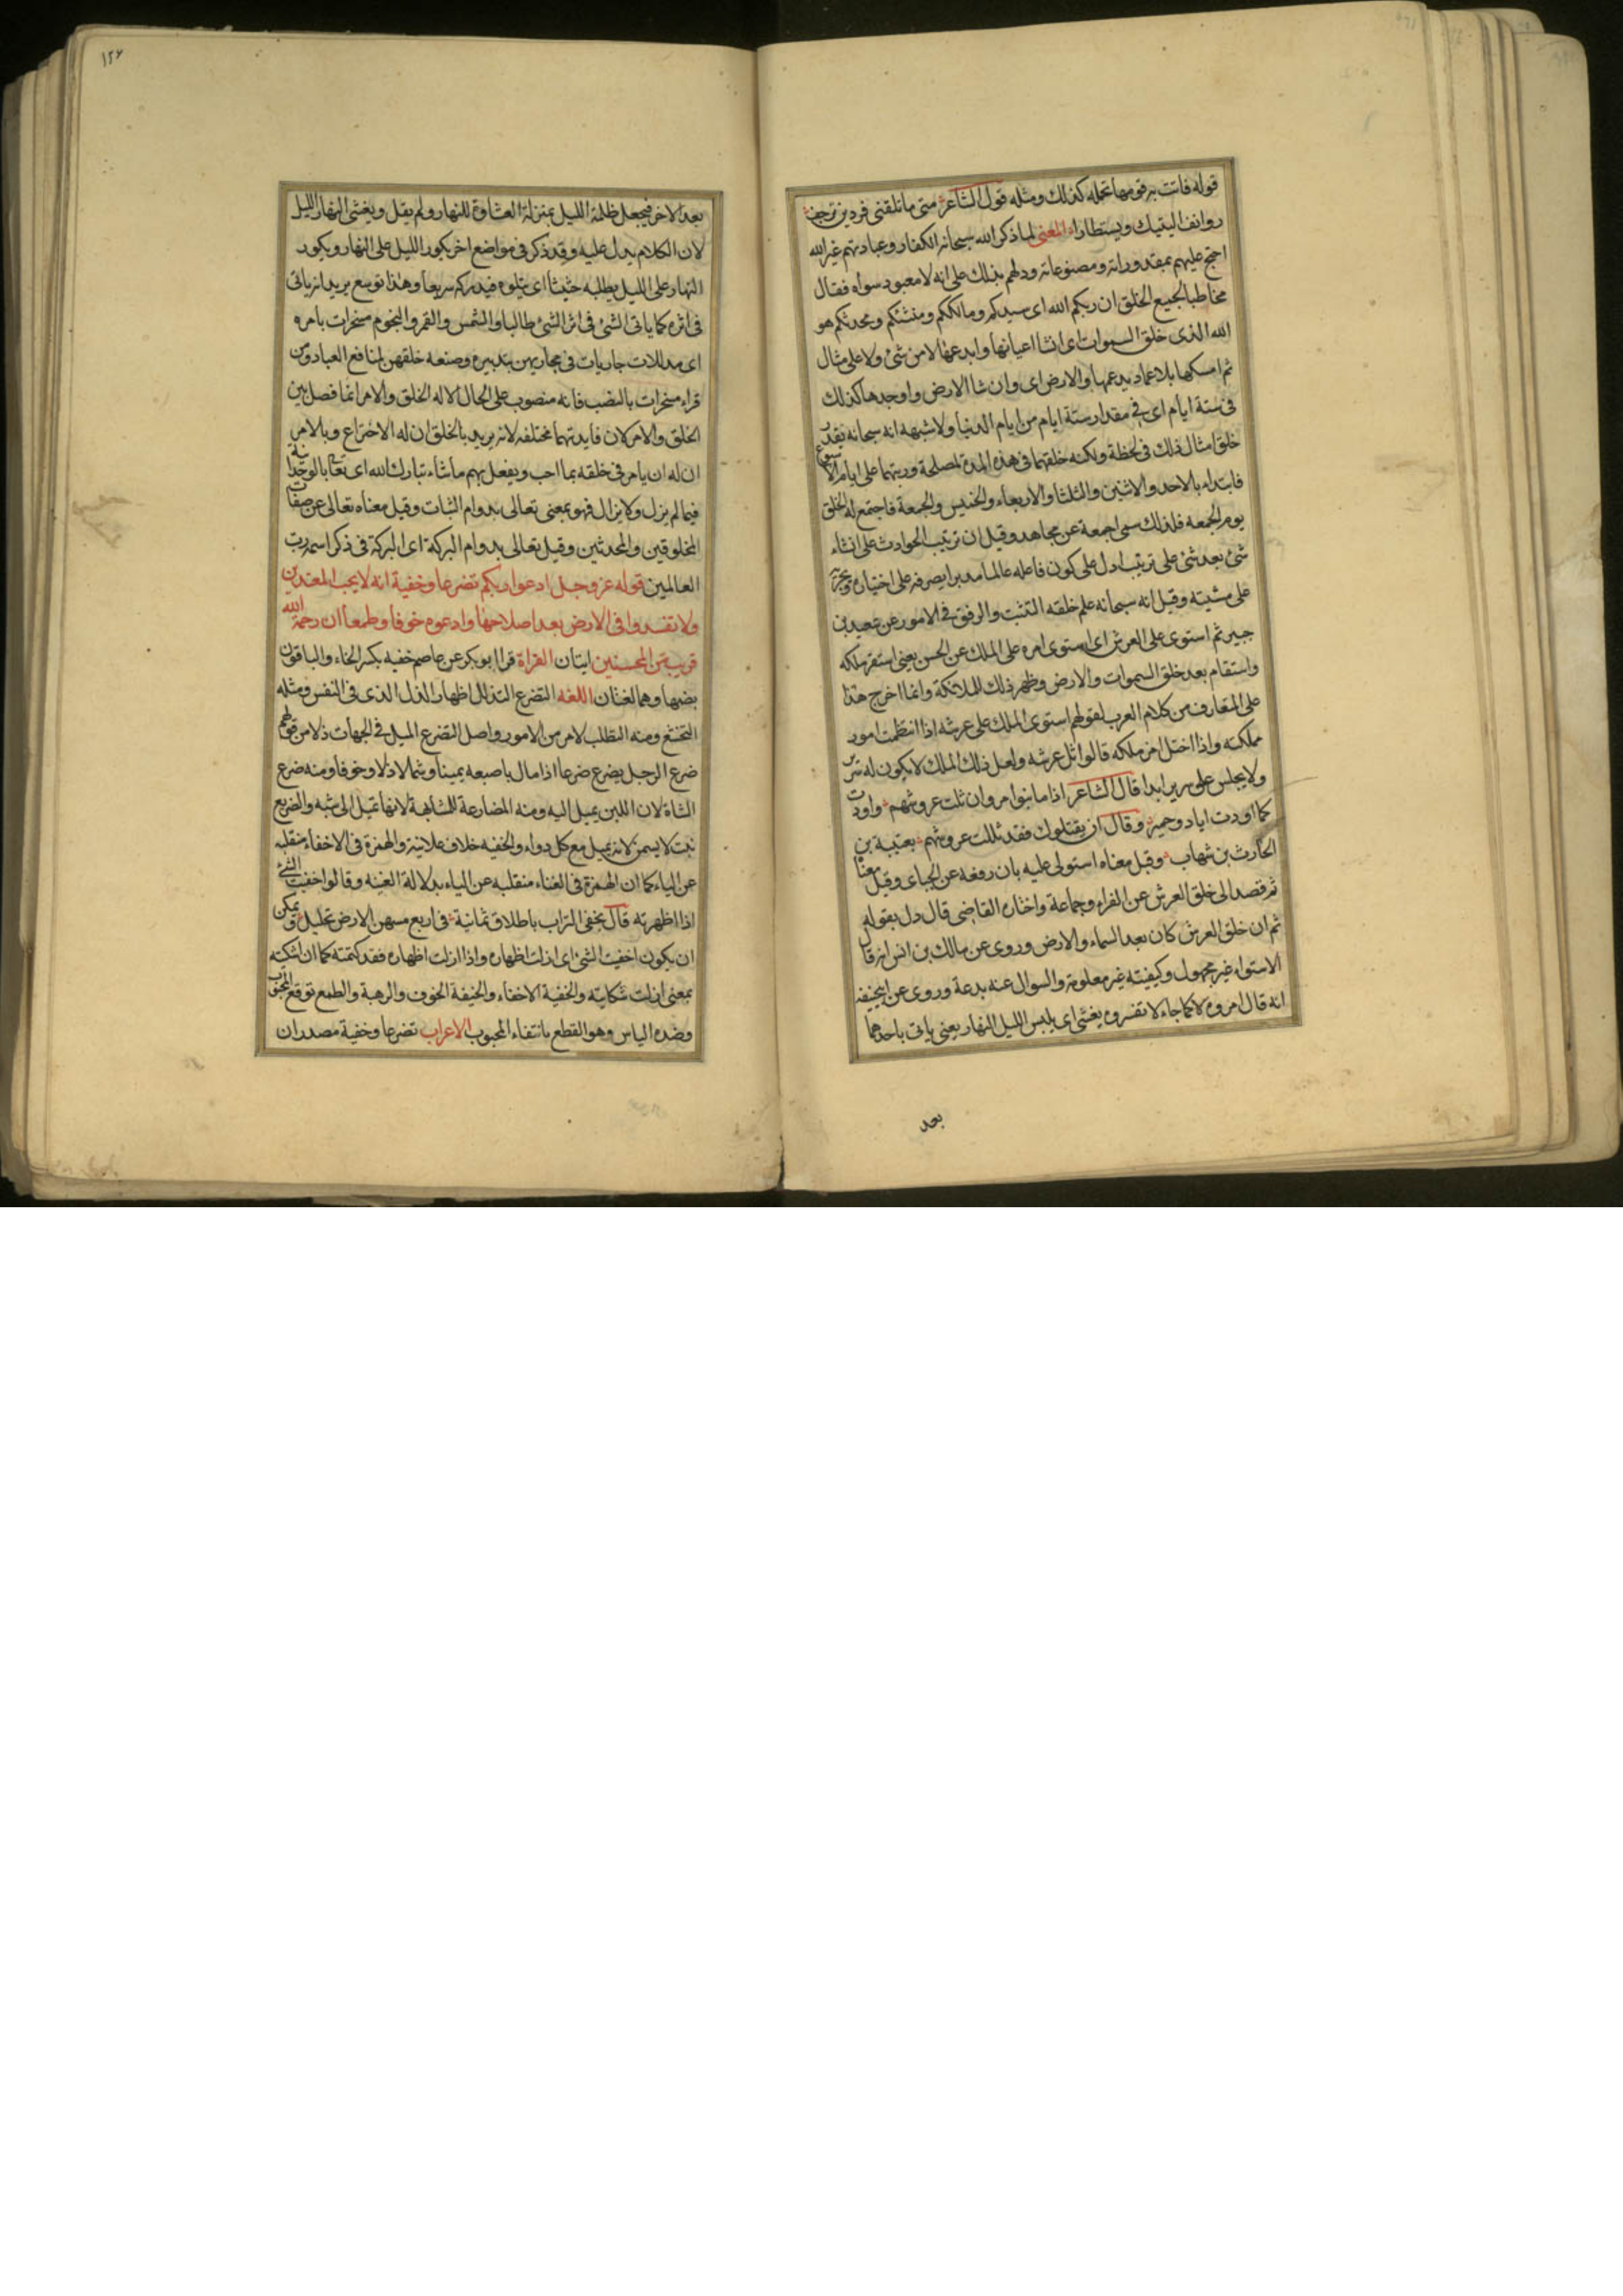 قوله فاتت به قومها تحمله كذلك ومثله قول الشاعر متى ما تلقنى فردين ترجف
روانف اليتيك ويستطارا المعنى لما ذكر الله سبحانه الكفار وعبادتهم غير الله
احتج عليهم بمقدوراته ومصنوعاته ودلهم بذلك على انه لا معبود سواه فقال
مخاطبا لجميع الخلق ان ربكم الله اى سيدكم ومالككم ومنشئكم ومحدثكم هو
الله الذى خلق السموات اى انشا اعيانها وابدعها لا من شئ ولا على مثال
ثم امسكها بلا عماد يدعمها والارض اى وانشا الارض واوجدها كذلك
فى ستة ايام اى فى مقدار ستة ايام من ايام الدنيا ولا شبهه انه سبحانه يقدر
خلق امثال ذلك فى لحظة ولكنه خلقهما فى هذه المدة لمصلحة ورتبهما على ايام الاسبوع
فابتداء بالاحد والاثنين والثلثا والاربعاء والخميس والجمعة فاجتمع له الخلق
يوم الجمعه فلذلك سمى جمعة عن مجاهد وقيل ان ترتيب الحوادث على انشاء
شئ بعد شئ على ترتيب ادل على كون فاعله عالما مدبرا يصرفه على اختياره ويجريه
على مشيته وقيل انه سبحانه علم خلقه التثبت والرفق فى الامور عن سعيد بن
جبير ثم استوى على العرش اى استوى امره على الملك عن الحسن يعنى استقر ملكه
واستقام بعد خلق السموات والارض وظهر ذلك للملائكة وانما اخرج هذا
على المتعارف من كلام العرب لقولهم استوى الملك على عرشه اذا انتظمت امور
مملكته واذا اختل امر ملكه قالوا ثل عرشه ولعل ذلك الملك لا يكون له سرير
ولا يجلس على سرير ابدا قال الشاعر اذا ما بنوا مروان ثلت عروشهم واودت
كما اودت اياد وحمير وقال ان يقتلوك فقد ثللت عروشهم بعتيبة بن
الحارث بن شهاب وقيل معناه استولى عليه بان رفعه عن الجباى وقيل معناه
ثم قصد الى خلق العرش عن الفراء وجماعة واختاره القاضى قال دل بقوله
ثم ان خلق العرش كان بعد السماء والارض وروى عن مالك بن انس انه قال
الاستواء غير مجهول وكيفيته غير معلومة والسوال عنه بدعة وروى عن ابيحنيفه
انه قال امروه كما جاء لا تفسروه يغشى اى يلبس الليل النهار يعنى ياتى باحدهما
بعد
١٢٧
بعد الاخر فيجعل ظلمة الليل بمنزلة الغشاوة للنهار ولم يقل ويغشى النهار الليل
لان الكلام يدل عليه وقد ذكر فى مواضع اخر يكور الليل على النهار ويكور
النهار على الليل يطلبه حثيثا اى يتلوه فيدركه سريعا وهذا توسع يريد انه ياتى
فى اثره كما ياتى الشئ فى اثر الشئ طالبا والشمس والقمر والنجوم مسخرات بامره
اى مذللات جاريات فى مجاريهن بتدبيره وصنعه خلقهن لمنافع العباد ومن
قراء مسخرات بالنصب فانه منصوب على الحال الا له الخلق والامر انما فصل بين
الخلق والامر لان فايدتهما مختلفه لانه يريد بالخلق ان له الاختراع وبالامر
ان له ان يامر فى خلقه بما احب ويفعل بهم ما شاء تبارك الله اى تعالى بالوحدانية
فيما لم يزل ولا يزال فهو بمعنى تعالى بدوام الثبات وقيل معناه تعالى عن صفات
المخلوقين والمحدثين وقيل تعالى بدوام البركة اى البركة فى ذكر اسمه رب
العالمين قوله عز وجل ادعوا ربكم تضرعا وخفية انه لا يحب المعتدين
ولا تفسدوا فى الارض بعد اصلاحها وادعوه خوفا وطمعا ان رحمة الله
قريب من المحسنين ايتان القراة قرا ابو بكر عن عاصم خفيه بكسر الخاء والباقون
بضمها وهما لغتان اللغه التضرع التذلل اظهار الذل الذى فى النفس ومثله
التخشع ومنه التطلب لامر من الامور واصل التضرع الميل فى الجهات ذلا من قولهم
ضرع الرجل يضرع ضرعا اذا مال باصبعه يمينا وشمالا ذلا وخوفا ومنه ضرع
الشاة لان اللبن يميل اليه ومنه المضارعة للمشابهة لانها تميل الى شبه والضريع
نبت لا يسمن لانه يميل مع كل دواء والخفيه خلاف علانية والهمزة فى الاخفاء منقلبه
عن الياء كما ان الهمزة فى الغناء منقلبه عن الياء بدلالة الغنيه وقالوا اخفيت الشئ
اذا اظهرته قال يخفى التراب باظلاق ثمانية فى اربع مسهن الارض تحليل ويمكن
ان يكون اخفيت الشئ اى ازلت اظهاره واذا ازلت اظهاره فقد كتمته كما ان اشكيته
بمعنى ازلت شكايته والخفية الاخفاء والخيفة الخوف والرهبة والطمع توقع المحبوب
وضده الياس وهو القطع بانتفاء المحبوب الاعراب تضرعا وخفية مصدران